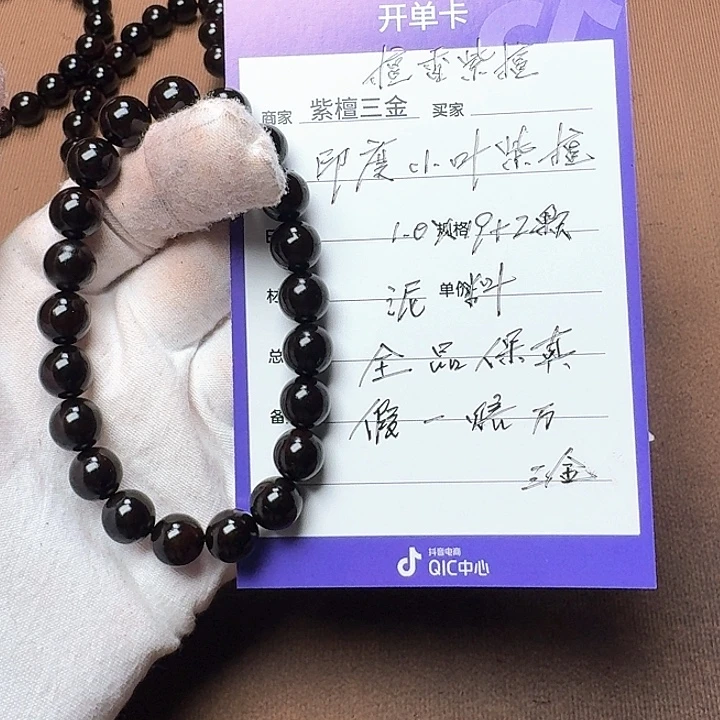 开单卡
檀香紫檀
商家 紫檀三金 买家
印度小叶紫檀
1.0 规格 9+2颗
材 泥料 单价
总 全品保真
备 假一赔万
三金
抖音电商
QIC中心